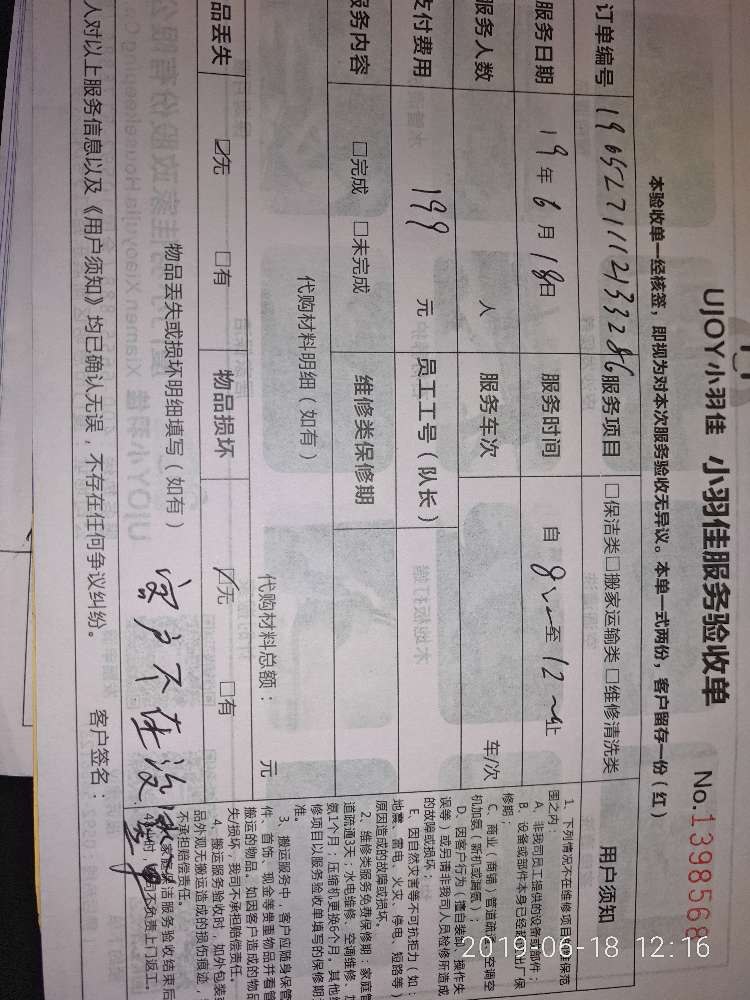 UJOY小羽佳 小羽佳服务验收单 No.1398568
本验收单一经核签，即视为对本次服务验收无异议。本单一式两份，客户留存一份（红）
订单编号 190527111213328 服务项目 □保洁类□搬家运输类□维修清洗类
服务日期 19年6月18日 服务时间 自 8 至 12 止
服务人数 人 服务车次 车/次
支付费用 199 元 员工工号（队长）
服务内容 □完成 □未完成 维修类保修期
代购材料明细（如有）
代购材料总额： 元
品丢失 ☑无 □有 物品损坏 ☑无 □有
物品丢失或损坏明细填写（如有）
客户不在没
人对以上服务信息以及《用户须知》均已确认无误，不存在任何争议纠纷。 客户签名：
用户须知
1、下列情况不在维修项目
围之内：
A、非我司员工提供的设备或部件；
B、设备或部件本身已经
修期；
C、商业（商铺）管道疏通
机加氨（新机或漏氨）；
D、因客户行为（擅自装卸、操作失
误等）或另请非我司人员检修所造成
的故障或损坏；
E、因自然灾害等不可抗拒力（如：
地震、雷电、火灾、停电、短路等）
原因造成的故障或损坏。
2、维修类服务免费保修期：家庭管
道疏通3天；水电维修、空调维修、
氨1个月；压缩机更换6个月。其他
修项目以服务验收单填写的保修期
准。
3、搬运服务中，客户应随身保管
件、首饰、现金等贵重物品并看管
搬运的物品。如因客户造成的物品
失/损坏，我司不承担赔偿责任。
4、搬运服务验收时，如外包装
品外观无搬运造成的损伤痕迹，
不承担赔偿责任。
保洁服务验收结束后
不负责上门返工。
2019-06-18 12:16